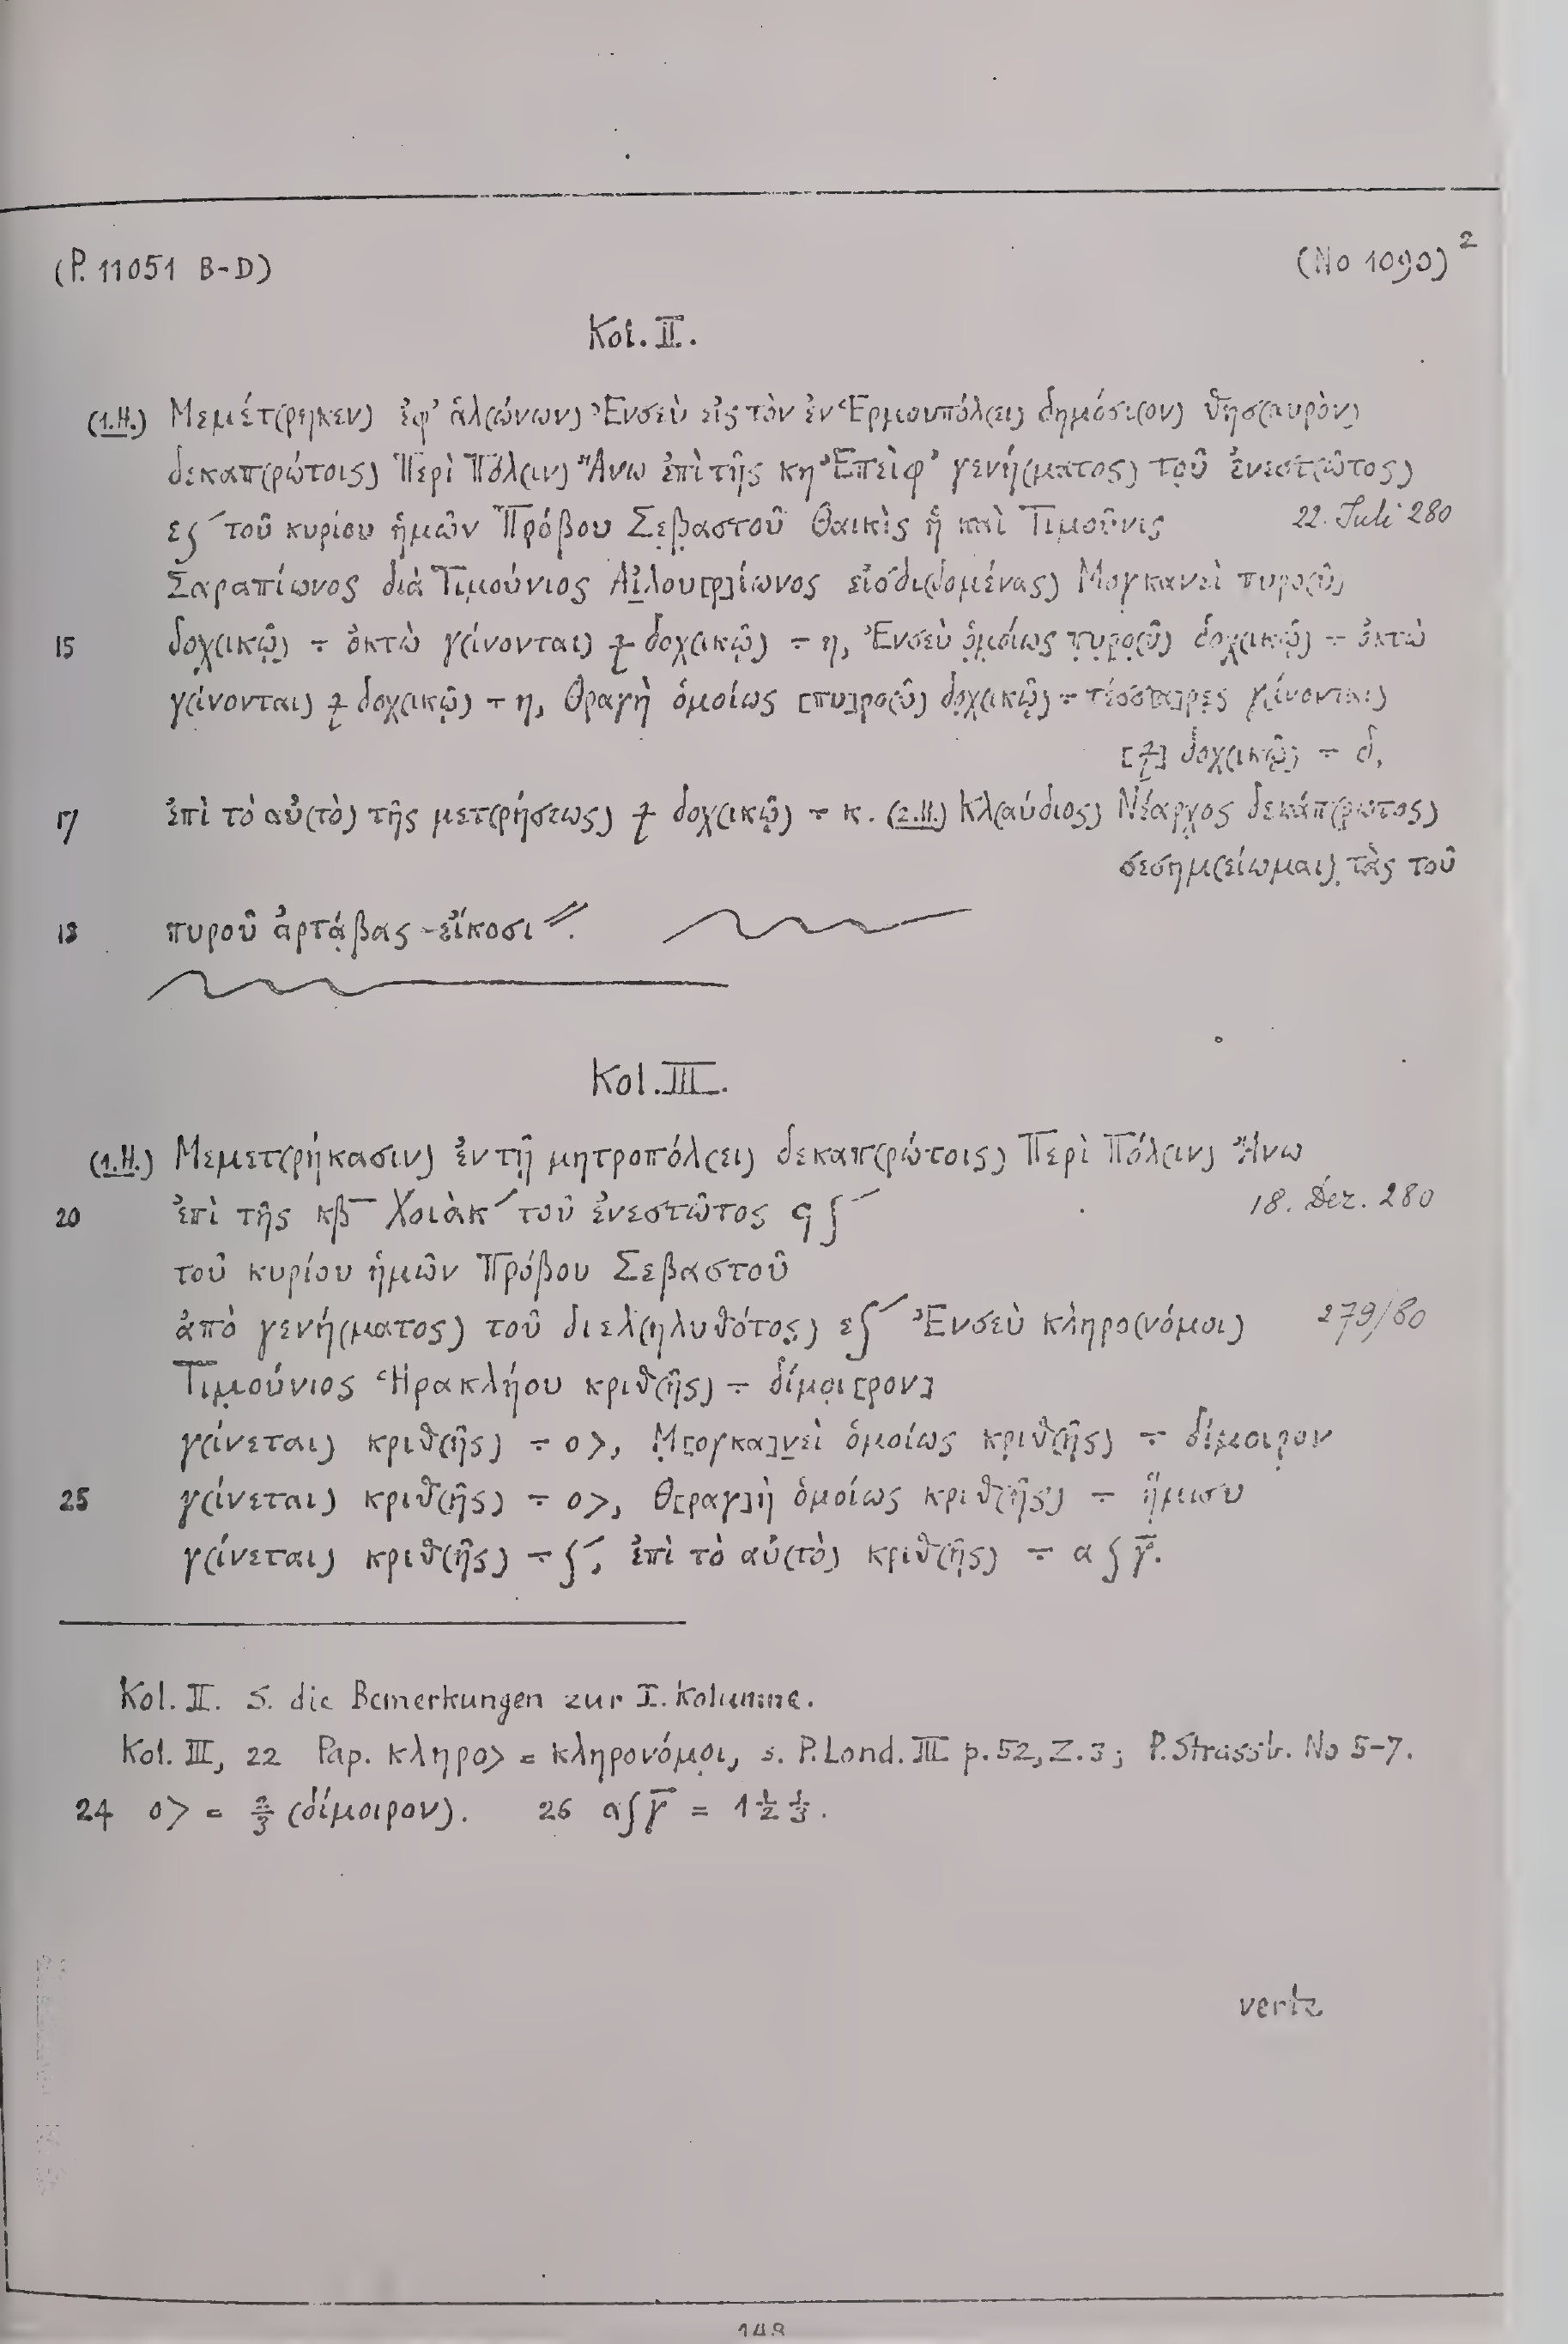 (P. 11051 B-D) (No 1090)²
Kol. II.
(1.H.) Μεμέτ(ρηκεν) ἐφ' ἁλ(ώνων) Ἐνσεὺ εἰς τὸν ἐν Ἑρμουπόλ(ει) δημόσι(ον) θησ(αυρὸν)
δεκαπ(ρώτοις) Περὶ Πόλ(ιν) Ἄνω ἐπὶ τῆς κη Ἐπεὶφ' γενή(ματος) τοῦ ἐνεστ(ῶτος)
εʃ´ τοῦ κυρίου ἡμῶν Πρόβου Σεβ̣αστοῦ Θαικὶς ἡ καὶ Τιμοῦνις 22. Juli 280
Σαραπίωνος διὰ Τιμούνιος Αἰλου[ρ]ίωνος εἰσδι(δομένας) Μογκανεὶ πυρο(ῦ)
15 δοχ(ικῷ) ÷ ὀκτὼ γ(ίνονται) ⳨ δοχ(ικῷ) ÷ η, Ἐνσεὺ ὁμ̣οίως π̣υ̣ρ̣ο̣(ῦ) δοχ(ικῷ) ÷ ὀκτὼ
γ(ίνονται) ⳨ δοχ(ικῷ) ÷ η, Θραγὴ ὁμοίως [πυ]ρο(ῦ) δοχ(ικῷ) ÷ τέσσ[α]ρες γ(ίνονται)
[⳨] δοχ(ικῷ) ÷ δ,
17 ἐπὶ τὸ αὐ(τὸ) τῆς μετ(ρήσεως) ⳨ δοχ(ικῷ) ÷ κ. (2.H.) Κλ(αύδιος) Νέαρχος δεκάπ(ρωτος)
σεσημ(είωμαι) τὰς τοῦ
18 πυροῦ ἀρτάβ̣ας εἴκοσι //.
Kol. III.
(1.H.) Μεμετ(ρήκασιν) ἐν τῇ μητροπόλ(ει) δεκαπ(ρώτοις) Περὶ Πόλ(ιν) Ἄνω
20 ἐπὶ τῆς κβ¯ Χοιὰκ´ τοῦ ἐνεστῶτος ϛʃ´ 18. Dez. 280
τοῦ κυρίου ἡμῶν Πρόβου Σεβαστοῦ
ἀπὸ γενή(ματος) τοῦ διελ(ηλυθότος) εʃ´ Ἐνσεὺ κληρο(νόμοι) 279/80
Τιμ̣ούνιος Ἡρακλήου κριθ(ῆς) ÷ δίμοι[ρον]
γ(ίνεται) κριθ(ῆς) ÷ ο>, Μ̣[ογκα]ν̣εὶ ὁμοίως κριθ(ῆς) ÷ δίμοιρ̣ον
25 γ(ίνεται) κριθ(ῆς) ÷ ο>, Θ[ραγ]ὴ ὁμοίως κριθ(ῆς) ÷ ἥμισυ
γ(ίνεται) κριθ(ῆς) ÷ ʃ´, ἐπὶ τὸ αὐ(τὸ) κριθ(ῆς) ÷ αʃγ̄.
Kol. II. S. die Bemerkungen zur I. Kolumne.
Kol. III, 22 Pap. κληρο> = κληρονόμοι, s. P. Lond. III p. 52, Z. 3; P. Strassb. No 5-7.
24 ο> = ⅔ (δίμοιρον). 26 αʃγ̄ = 1 ½ ⅓.
verte
148